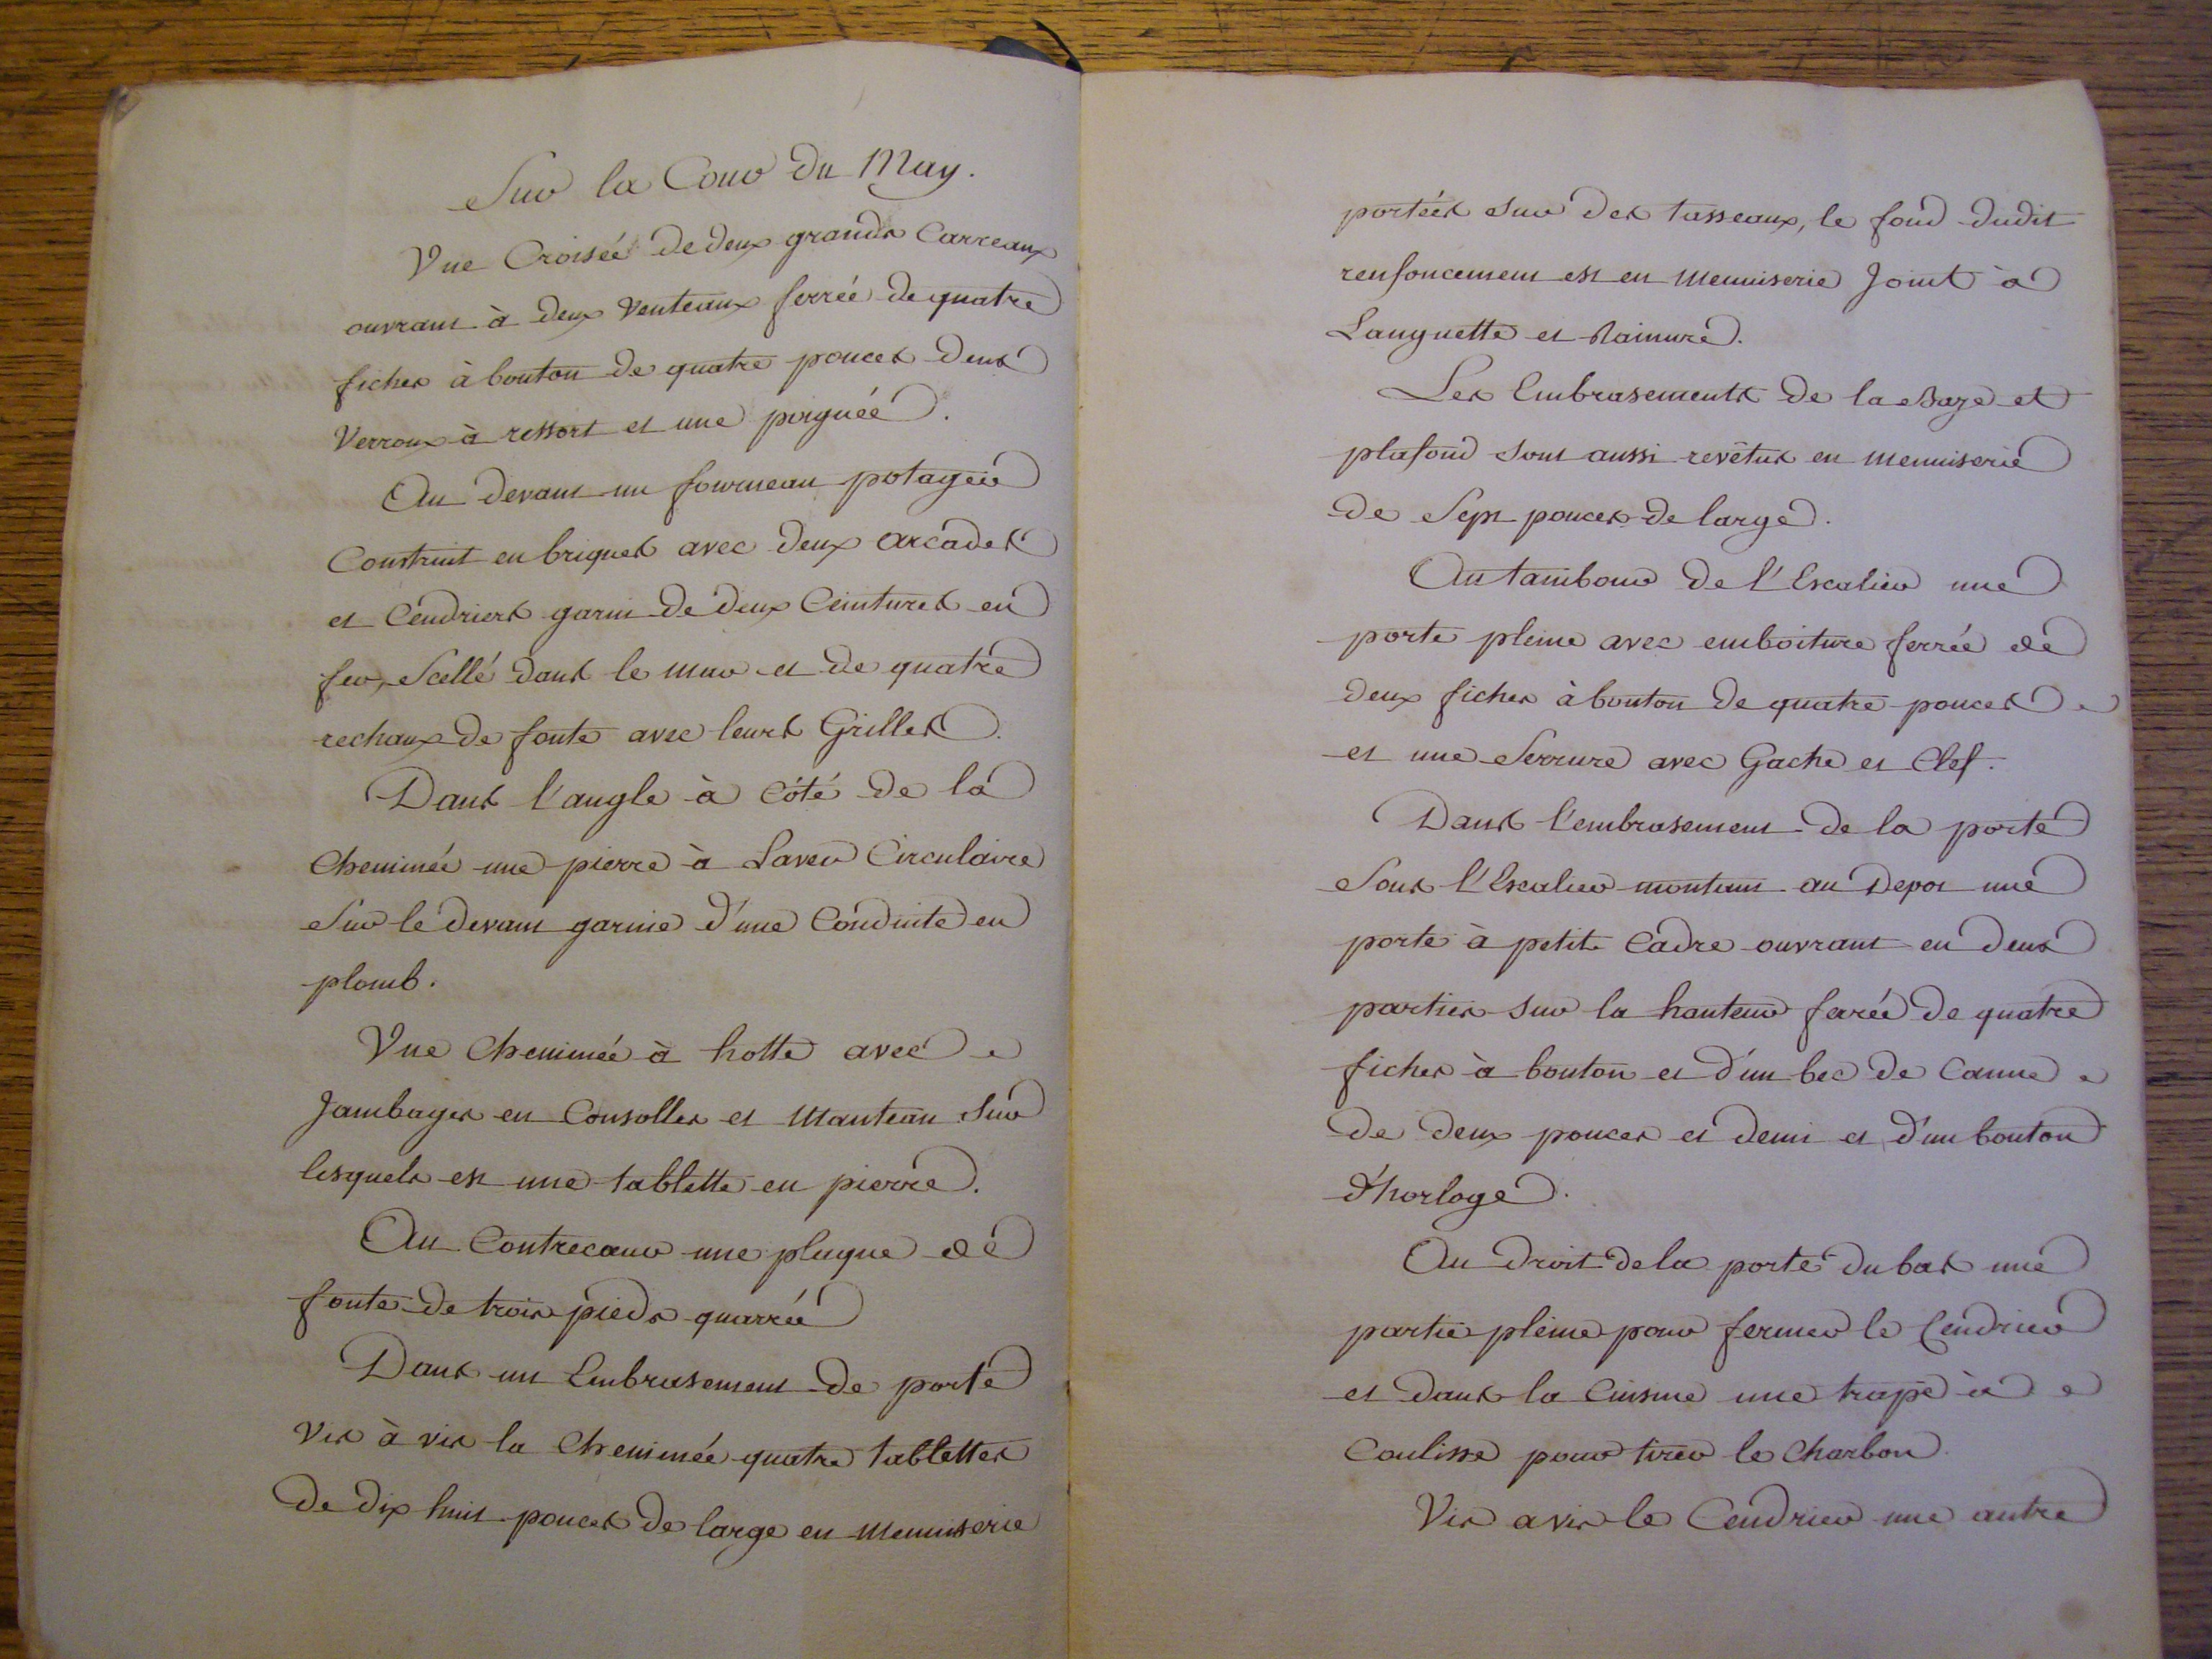 Sur la Cour du May.
Une Croisée de deux grands Carreaux
ouvrant à deux Venteaux ferrée de quatre
fiches à bouton de quatre pouces deux
Verroux à ressort et une poignée.
Au devant un fourneau potager
Construit en briques avec deux arcades
et Cendriers garni de deux Ceintures en
fer, Scellé dans le mur et de quatre
rechaux de fonte avec leurs Grilles.
Dans l'angle à côté de la
Cheminée une pierre à Laver Circulaire
Sur le devant garnie d'une Conduite en
plomb.
Une Cheminée à hotte avec
Jambages en Consolles et Manteau Sur
lesquels est une tablette en pierre.
Au Contrecœur une plaque de
fonte de trois pieds quarrée
Dans un Embrasement de porte
Vis à vis la Cheminée quatre tablettes
de dix huit pouces de large en Menuiserie
portées Sur des tasseaux, le fond dudit
renfoncement est en Menuiserie Joint à
Languette et Rainure.
Les Embrasements de la Baze et
plafond sont aussi revêtus en menuiserie
de Sept pouces de large.
Au tambour de l'Escalier une
porte pleine avec emboiture ferrée de
deux fiches à bouton de quatre pouces
et une Serrure avec Gache et Clef.
Dans l'embrasement de la porte
Sous l'Escalier montant au Depot une
porte à petit Cadre ouvrant en deux
parties sur la hauteur ferée de quatre
fiches à bouton et d'un bec de Canne
de deux pouces et demi et d'un bouton
d'horloge.
Au droit de la porte du bas une
partie pleine pour fermer le Cendrier
et dans la Cuisine une trape à
Coulisse pour tirer le Charbon
Vis a vis le Cendrier une autre